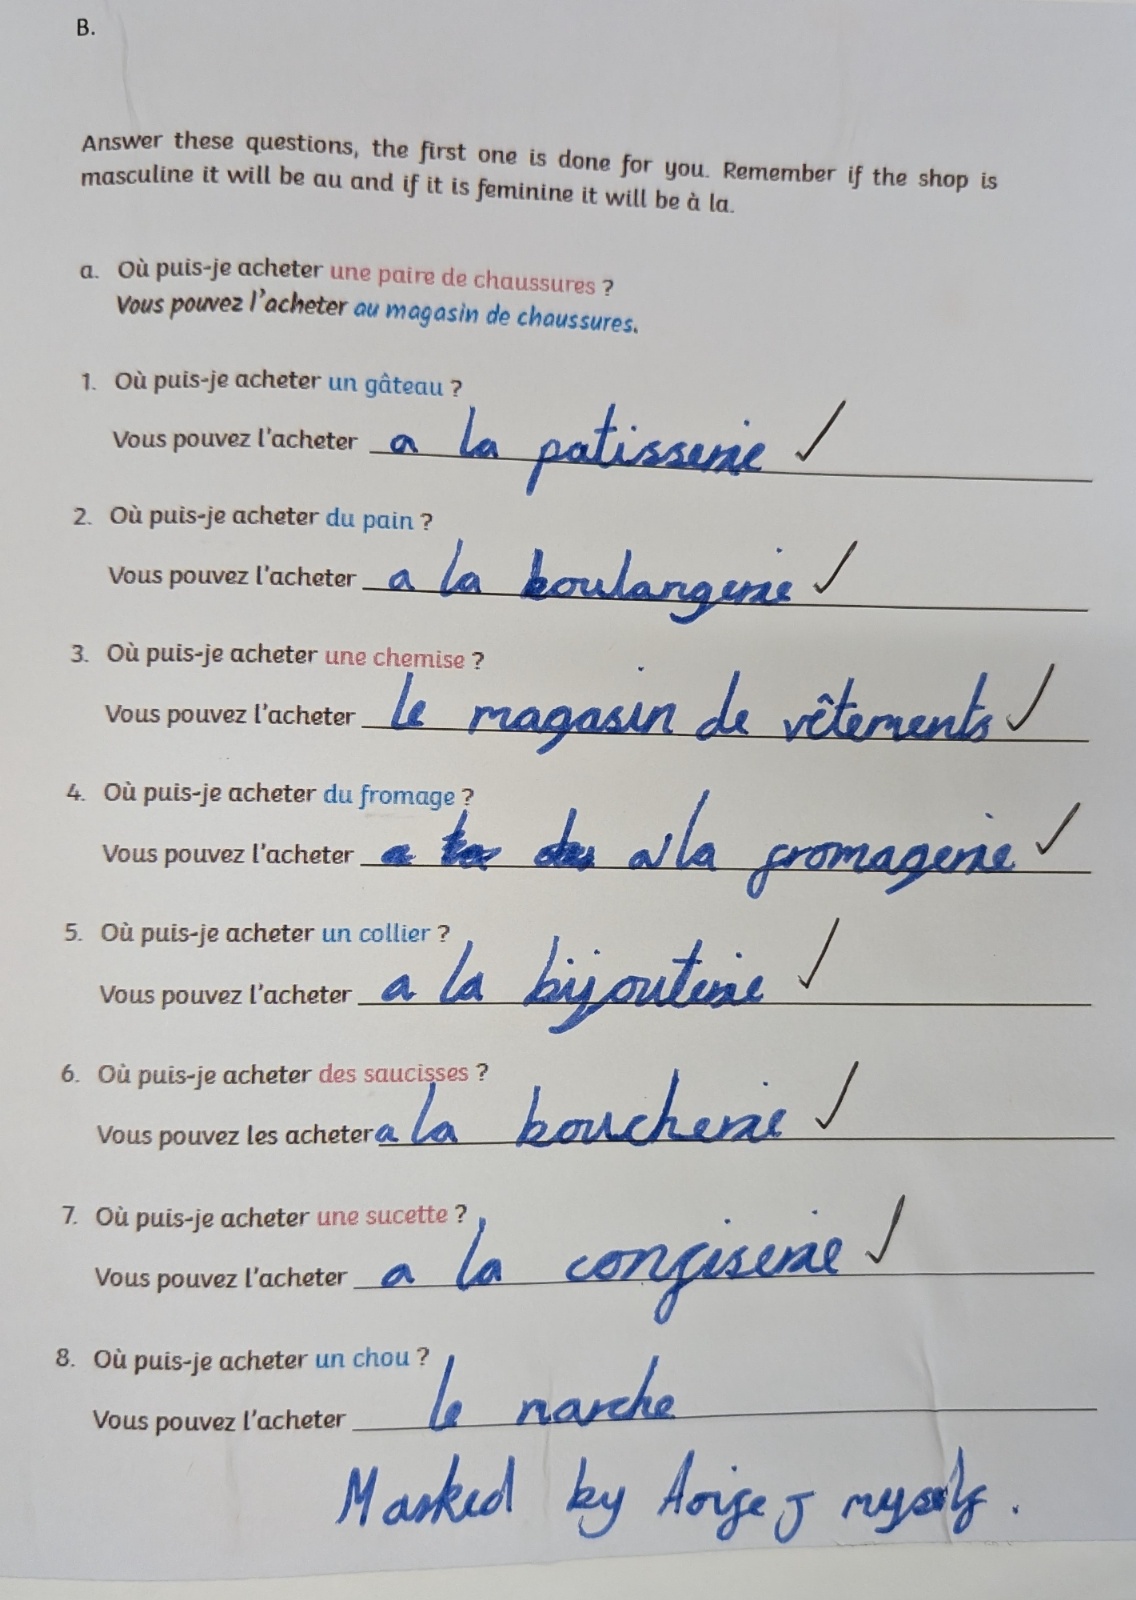 B.
Answer these questions, the first one is done for you. Remember if the shop is
masculine it will be au and if it is feminine it will be à la.
a. Où puis-je acheter une paire de chaussures ?
Vous pouvez l'acheter au magasin de chaussures.
1. Où puis-je acheter un gâteau ?
Vous pouvez l'acheter a la patisserie ✓
2. Où puis-je acheter du pain ?
Vous pouvez l'acheter a la boulangerie ✓
3. Où puis-je acheter une chemise ?
Vous pouvez l'acheter le magasin de vêtements ✓
4. Où puis-je acheter du fromage ?
Vous pouvez l'acheter a la fromagerie ✓
5. Où puis-je acheter un collier ?
Vous pouvez l'acheter a la bijouterie ✓
6. Où puis-je acheter des saucisses ?
Vous pouvez les acheter a la boucherie ✓
7. Où puis-je acheter une sucette ?
Vous pouvez l'acheter a la confiserie ✓
8. Où puis-je acheter un chou ?
Vous pouvez l'acheter le marche
Marked by myself.